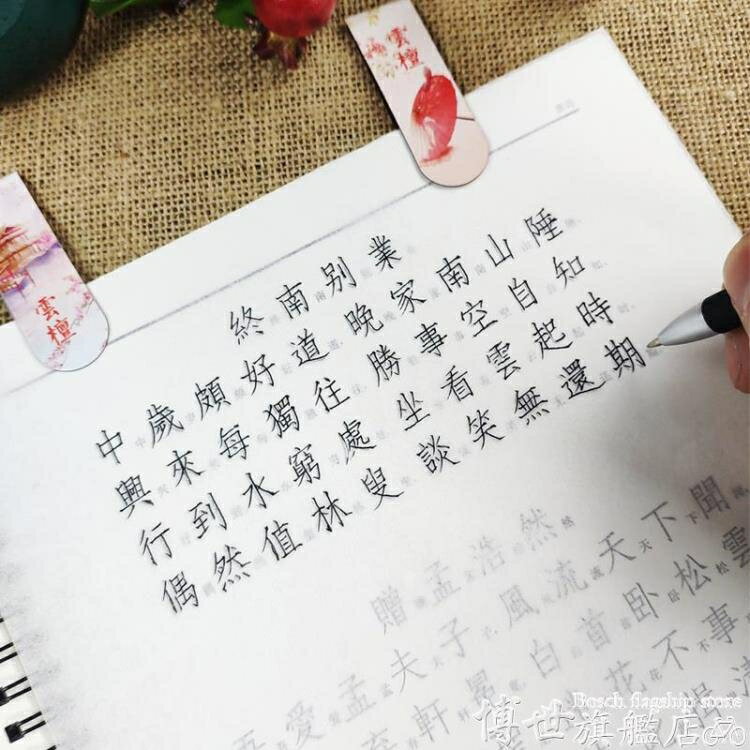 雲檀
雲檀
終南别業
中歲頗好道晚家南山陲
興來每獨往勝事空自知
行到水窮處坐看雲起時
偶然值林叟談笑無還期
贈孟浩然
吾愛孟夫子風流天下聞
弃軒冕白首卧松雲
花不事
Bosch flagship store
博世旗艦店